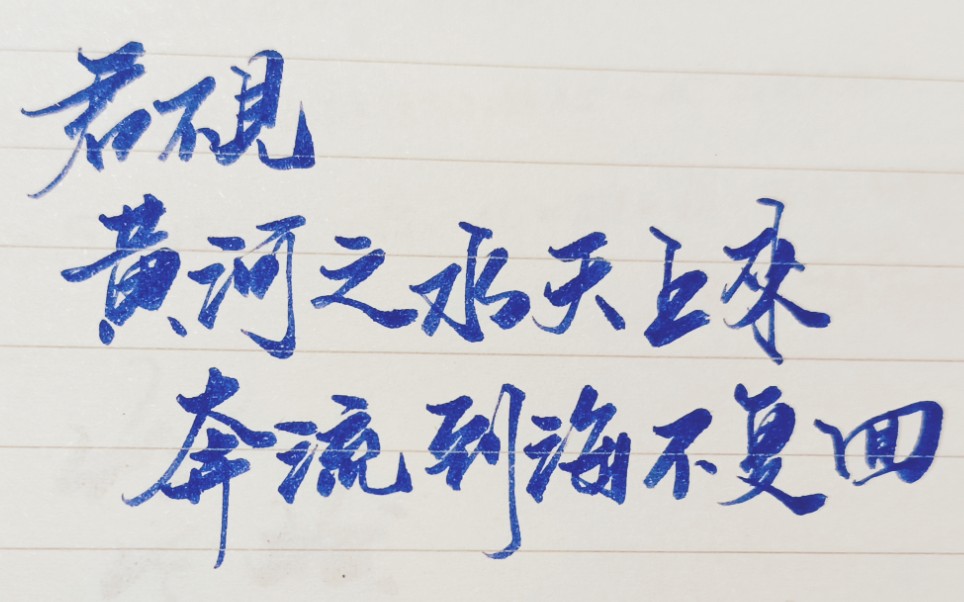 君不見
黄河之水天上來
奔流到海不复回